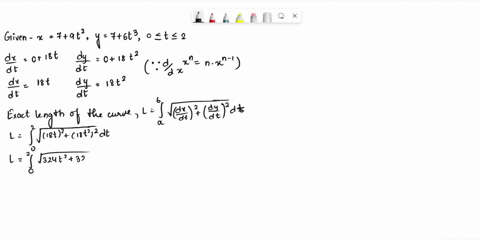 Given - x = 7+9t², y = 7+6t³, 0 ≤ t ≤ 2
dx/dt = 0+18t dy/dt = 0+18t² (∵ d/dx xⁿ = n·xⁿ⁻¹)
dx/dt = 18t dy/dt = 18t²
Exact length of the curve, L = ∫ₐᵇ √((dx/dt)² + (dy/dt)²) dt
L = ∫₀² √((18t)² + (18t²)²) dt
L = ∫₀² √(324t² + 32